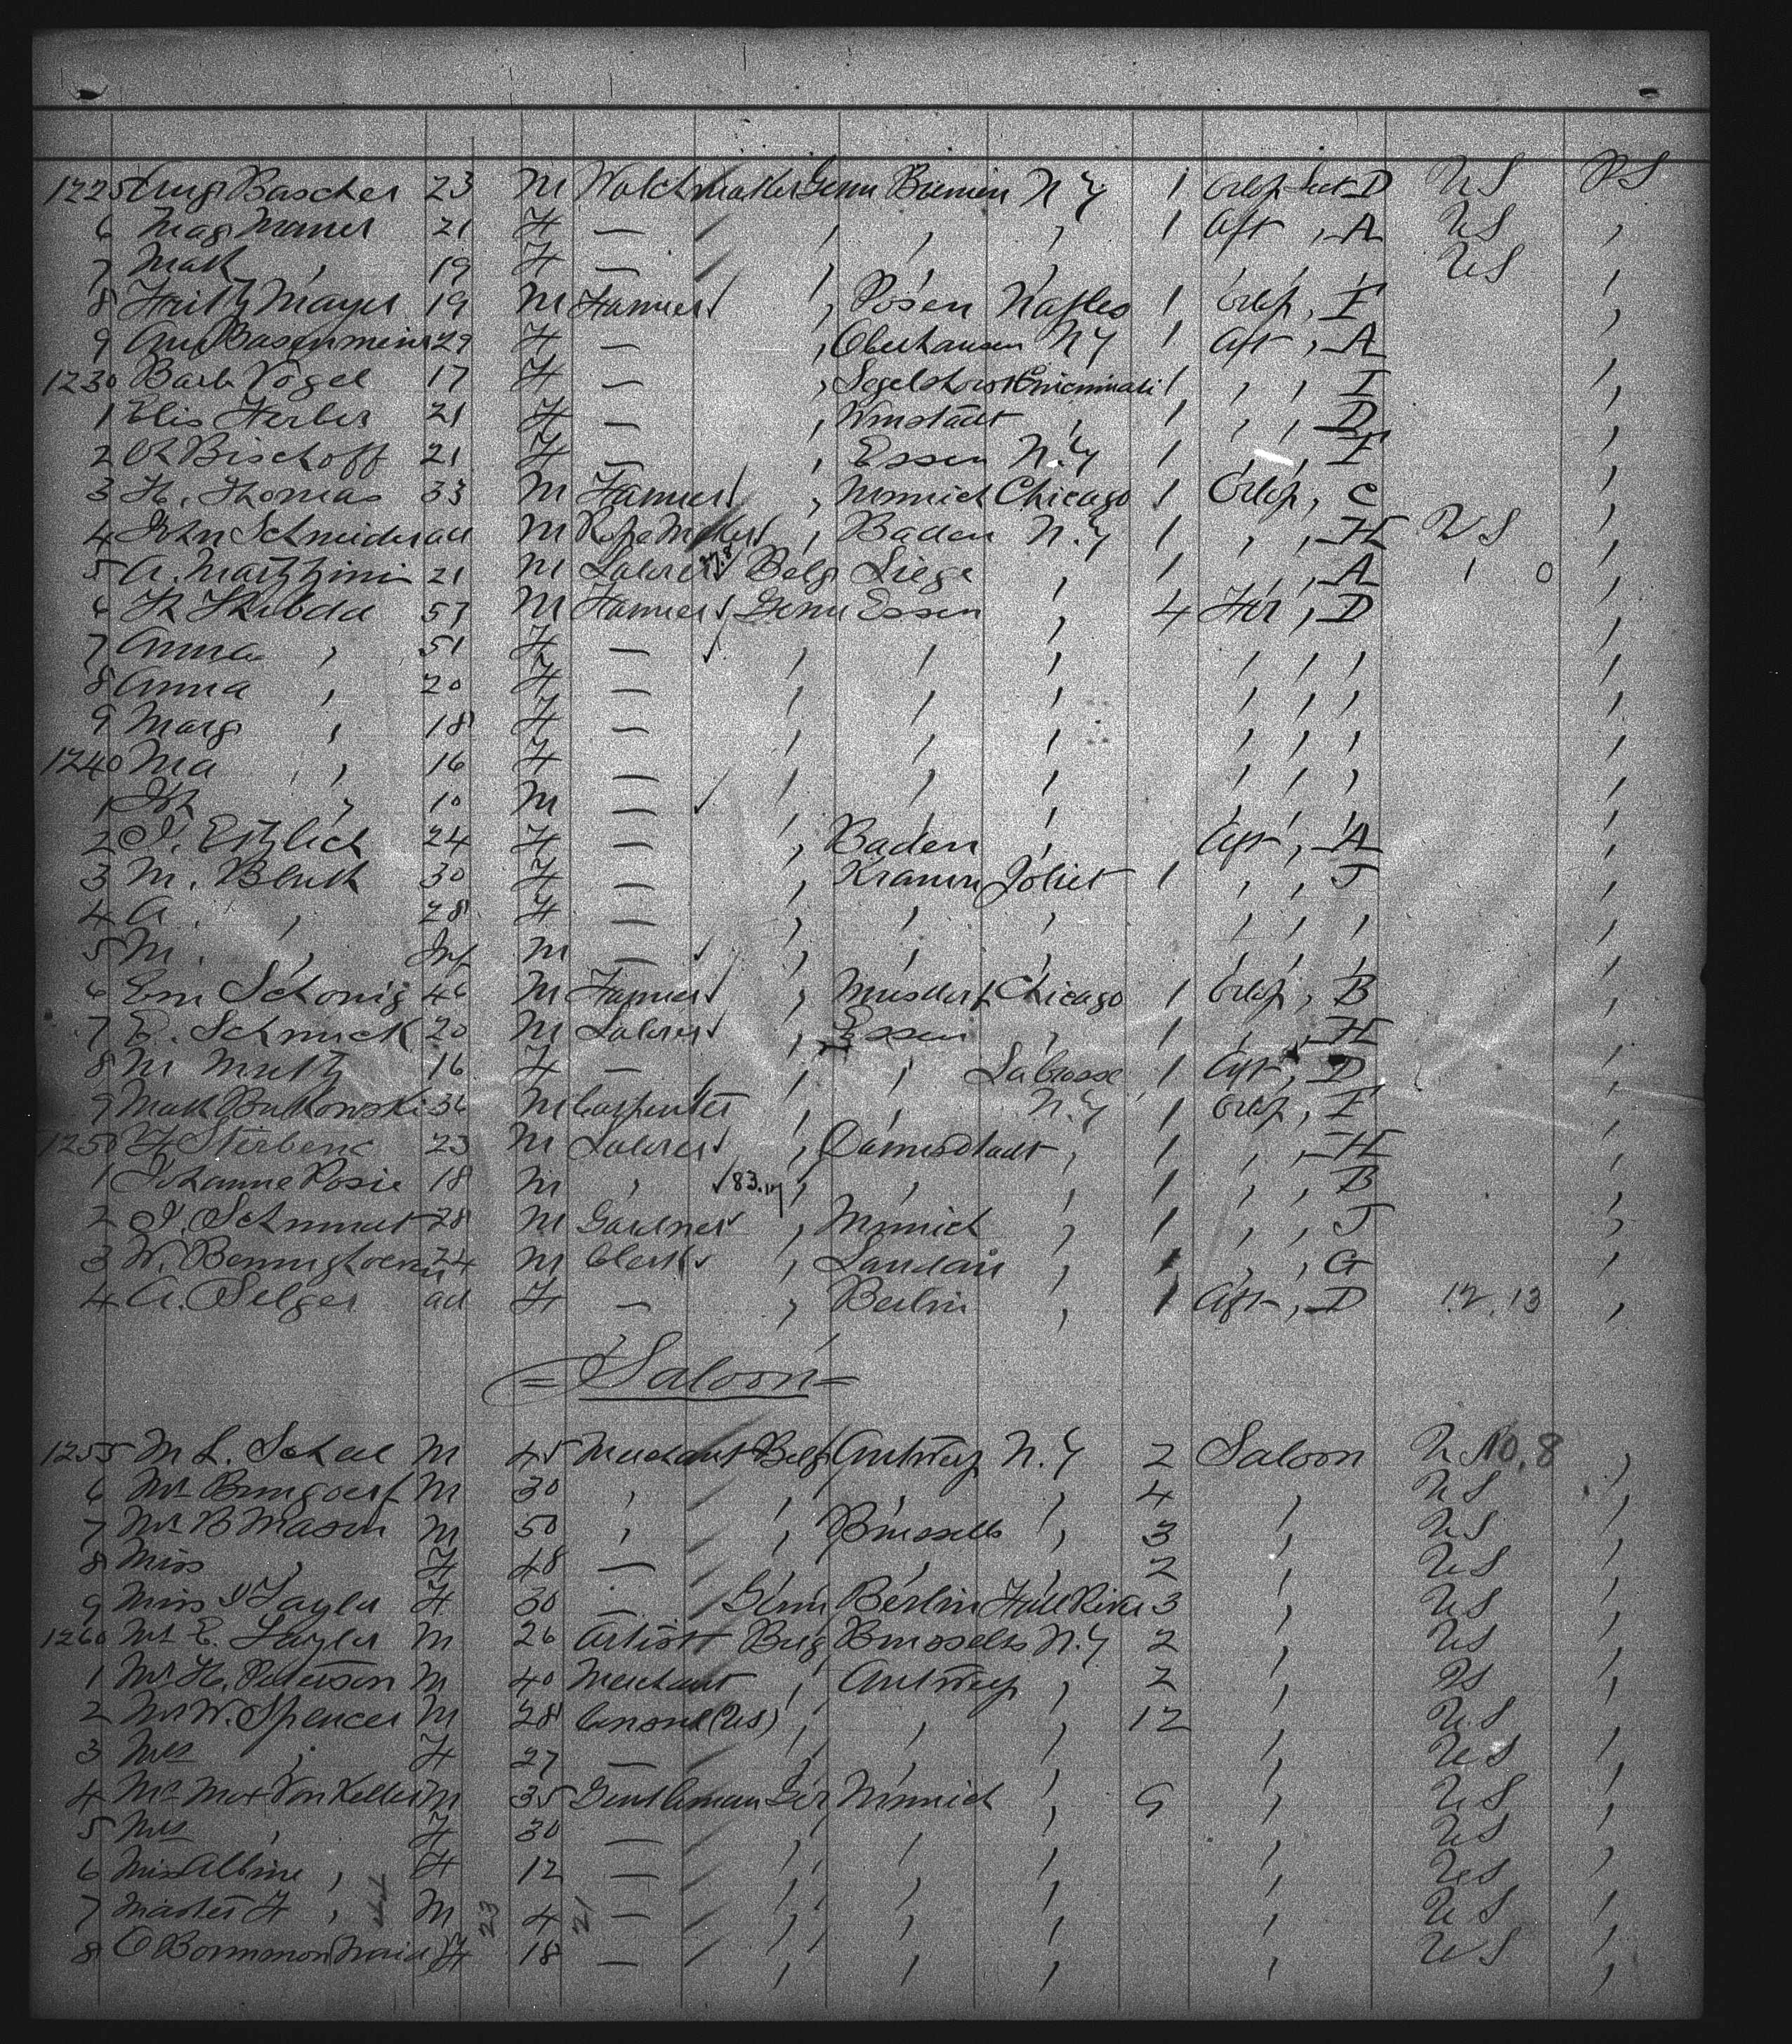 1225 Aug Bascher 23 M Watchmaker Germ Bremen N Y 1 Orlop Sect D US PS
6 Mag Maner 21 F — , , , 1 Aft , A US ,
7 Mak , 19 F — , , , , , , US ,
8 Fritz Mayer 19 M Farmer , Posen Naples 1 Orlop , I ,
9 29 F — , Oberhausen N Y 1 Aft , A ,
1230 Barb Vogel 17 F — , Cincinnati 1 , , I ,
1 Elis Herber 21 F — , , 1 , , D ,
2 Bischoff 21 F — , Essen N. Y 1 , , I ,
3 H. Thomas 33 M Farmer , Munich Chicago 1 Orlop , C ,
4 John Schneider ad M Rope Maker , Baden N. Y 1 , , H US ,
5 A. 21 M Laborer Belg Liege , 1 , , A 1 0 ,
6 57 M Farmer Germ Essen , 4 , D ,
7 Anna , 51 F — , , , , , , ,
8 Anna , 20 F — , , , , , , ,
9 Marg , 18 F — , , , , , , ,
1240 Ma , 16 F — , , , , , , ,
1 Joh , 10 M — , , , , , , ,
2 24 F — , Baden , Aft , A ,
3 M. 30 F — , Joliet 1 , , J ,
4 A. , 28 F — , , , , , , ,
5 M. , Inf M — , , , , , , ,
6 Em Schonig 46 M Farmer , Chicago 1 Orlop , B ,
7 E. Schmuck 20 M Laborer , Essen , 1 , , H ,
8 M Muth 16 F — , , La Crosse 1 Aft , D ,
9 Butkowski 36 M Carpenter , , N. Y 1 Orlop , I ,
1250 23 M Laborer , Darmstadt , 1 , , H ,
1 Johanne Posie 18 M , 83.17 , , , 1 , , B ,
2 J. 28 M Gardner , Munich , 1 , , J ,
3 W. 24 M Clerk , Landau , 1 , , G ,
4 A. Selger ad F — , Berlin , 1 Aft , D 12. 13 ,
= Saloon =
1255 M L. Schal M 45 Merchant Belg Antwerp N. Y 2 Saloon U S 10.8 ,
6 Mr M 30 , , , , 4 , US ,
7 Mr B Mason M 50 , , Brussells , 3 , US ,
8 Miss , F 48 — , , , 2 , US ,
9 Miss Tayler F 30 — Germ Berlin Fall River 3 , US ,
1260 Mr E. M 26 Artist Belg Brussells N. Y 2 , US ,
1 Mr H. Peterson M 40 Merchant , Antwerp , 2 , US ,
2 Mr W. Spencer M 28 Consul (US) , , , 12 , U.S ,
3 Mrs , F 27 — , , , , US ,
4 Mr Max Von Keller M 35 Gentleman Ger Munich , 9 , US ,
5 Mrs , F 30 — , , , , US ,
6 Miss Albine , F 12 — , , , , US ,
7 Master F , M 4 — , , , , US ,
8 (Maid) F 18 — , , , , US ,
23
21